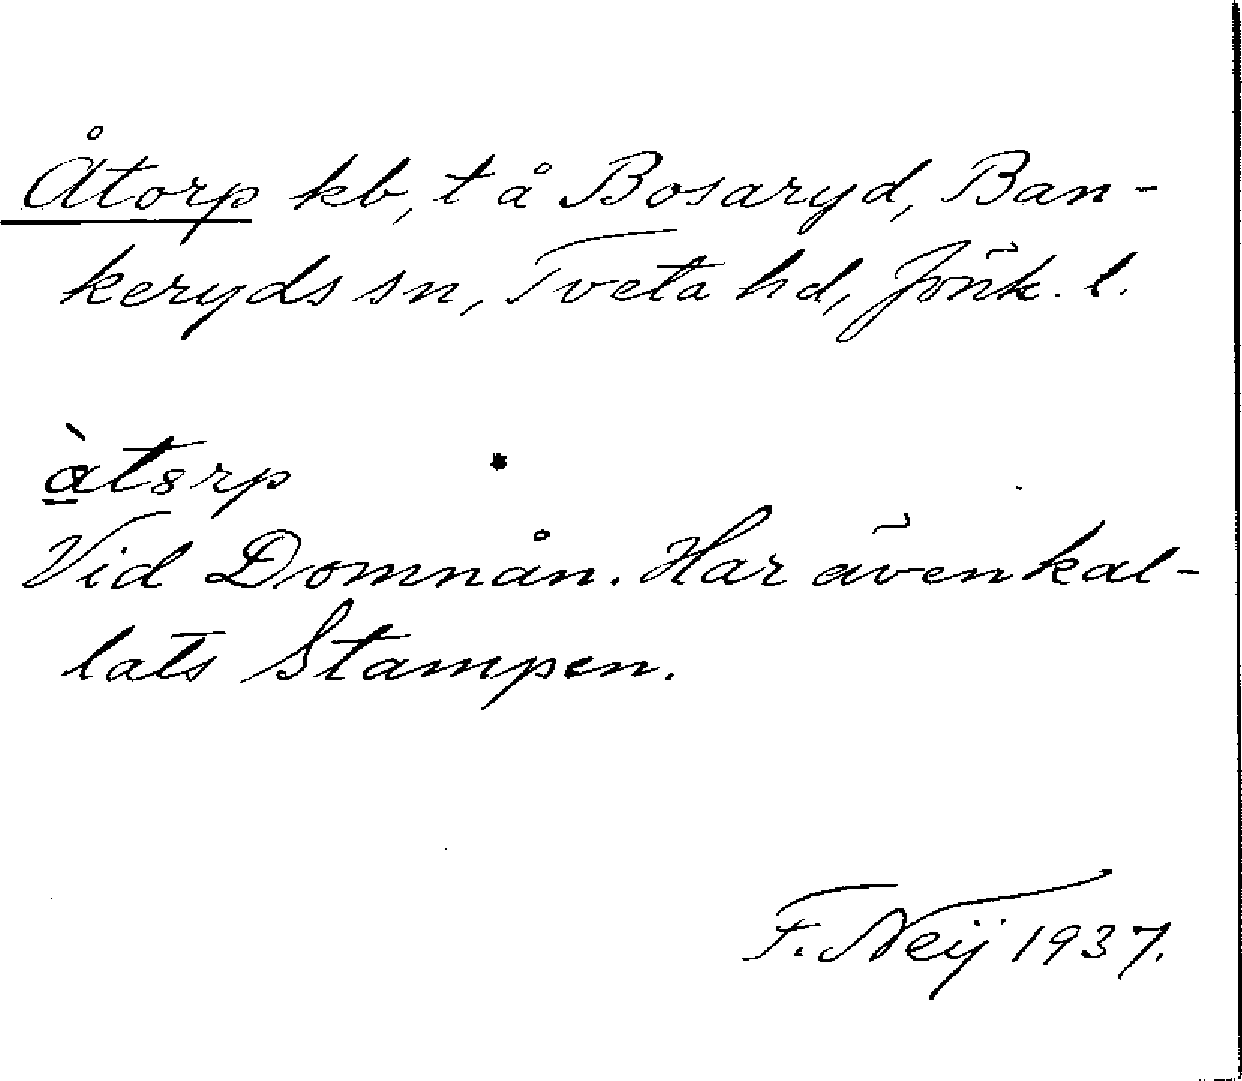 Åtorp kb, t å Bosaryd, Ban-
keryds sn, Tveta hd, Jönk. l.
àtsrp
Vid Domnån. Har även kal-
lats Stampen.
F. Neij 1937.